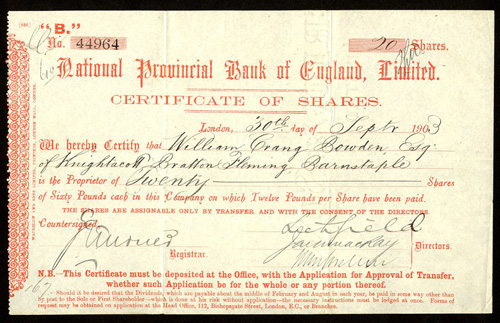 "B."
No. 44964 20 Shares.
National Provincial Bank of England, Limited.
CERTIFICATE OF SHARES.
London, 30th day of Septr 1903
We hereby Certify that William Crang Bowden Esq:
of Knightacott Bratton Fleming Barnstaple
is the Proprietor of Twenty Shares
of Sixty Pounds each in this Company on which Twelve Pounds per Share have been paid.
THE SHARES ARE ASSIGNABLE ONLY BY TRANSFER, AND WITH THE CONSENT OF THE DIRECTORS.
Countersigned, Lichfield
Directors.
Registrar.
N.B.—This Certificate must be deposited at the Office, with the Application for Approval of Transfer,
whether such Application be for the whole or any portion thereof.
Should it be desired that the Dividends, which are payable about the middle of February and August in each year, be paid in some way other than
by post to the Sole or First Shareholder—which is done at his risk without application—the necessary instructions must be lodged at once. Forms of
request may be obtained on application at the Head Office, 112, Bishopsgate Street, London, E.C., or Branches.